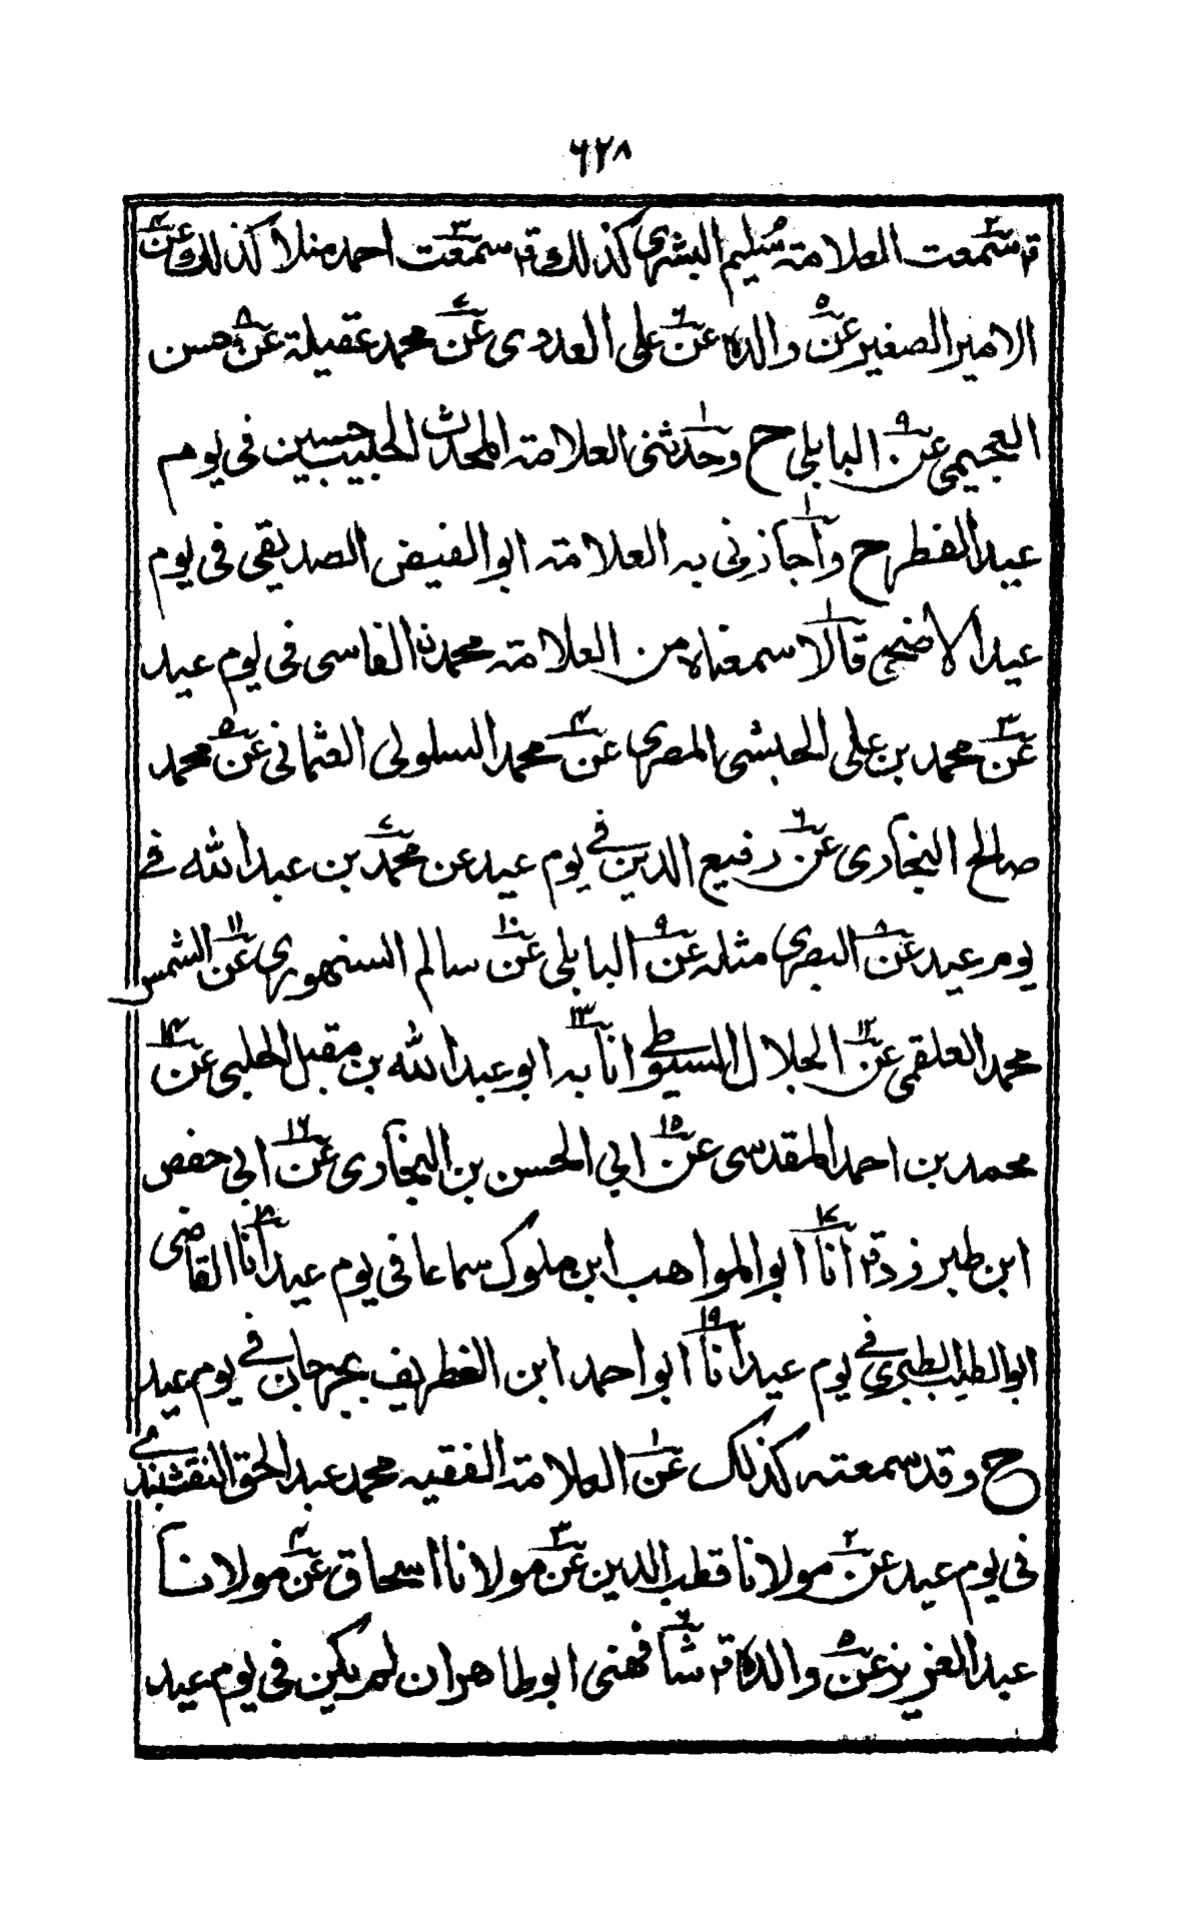 ٦٢٨
قہ سمعت العلامۃ سُليم البشری كذلك قہ سمعت احمد منلا كذلك وعن
الامير الصغير عن والدہ عن علی العدوی عن محمد عقيلة عن حسن
العجيمی عن البابلی ح وحدثنی العلامۃ المحدث الحبيب حسين فی يوم
عيد الفطر ح وأجازنی بہ العلامۃ ابو الفيض الصديقی فی يوم
عيد الاضحی قالا سمعناہ من العلامۃ محمد الفاسی فی يوم عيد
عن محمد بن علی الحبشی المصری عن محمد السلولی العثمانی عن محمد
صالح البخاری عن رفيع الدين فی يوم عيد عن محمد بن عبد الله فے
يوم عيد عن البصری مثلہ عن البابلی عن سالم السنهوری عن الشمس
محمد العلقمی عن الجلال السيوطی انا بہ ابو عبد الله بن مقبل الحلبی عن
محمد بن احمد المقدسی عن ابي الحسن بن البخاری عن ابی حفص
ابن طبرزد قہ انا ابو المواهب ابن ملوک سماعا فی يوم عيد أنا القاضی
ابو الطيب الطبری فی يوم عيد أنا ابو احمد ابن الغطريف بجرجان فی يوم عيد
ح وقد سمعتہ كذلک عن العلامۃ الفقيہ محمد عبد الحق النقشبندے
فی يوم عيد عن مولانا قطب الدين عن مولانا اسحاق عن مولانا
عبد العزيز عن والدہ قہ شافهنی ابو طاهر ان لم يكن فی يوم عيد